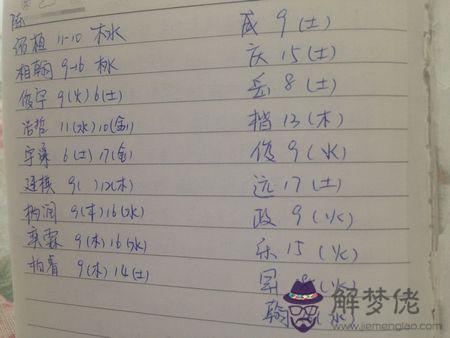 陈
佰植 11-10 木水
相翰 9-16 木水
俊宇 9(火)6(土)
浩哲 11(水)10(金)
宇 6(土)17(金)
建棋 9( )12(木)
柄润 9(木)16(水)
奕霖 9(木)16(水)
柏睿 9(木)14(土)
威 9(土)
庆 15(土)
岳 8(土)
楷 13(木)
俊 9(火)
远 17(土)
政 9(火)
乐 15(火)
翰
解梦佬
www.jiemenglao.com